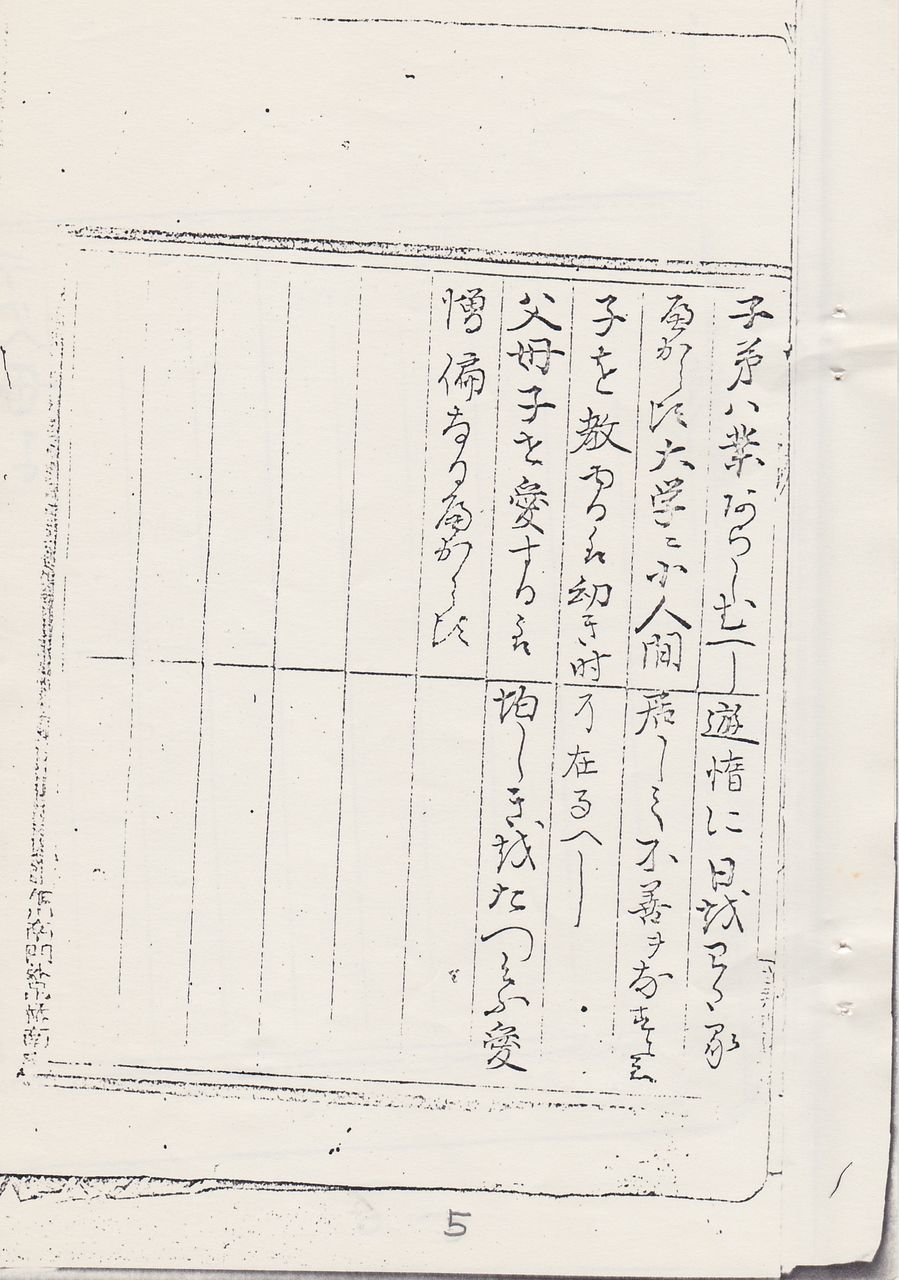 子弟ハ業あらしむへし遊惰に日越
遍からす大学ニ小人間居して不善ヲなすと云
子を教ゆるハ幼き時乃在るへし
父母子を愛するハしき越たつとふ愛
憎偏なる遍からす
5